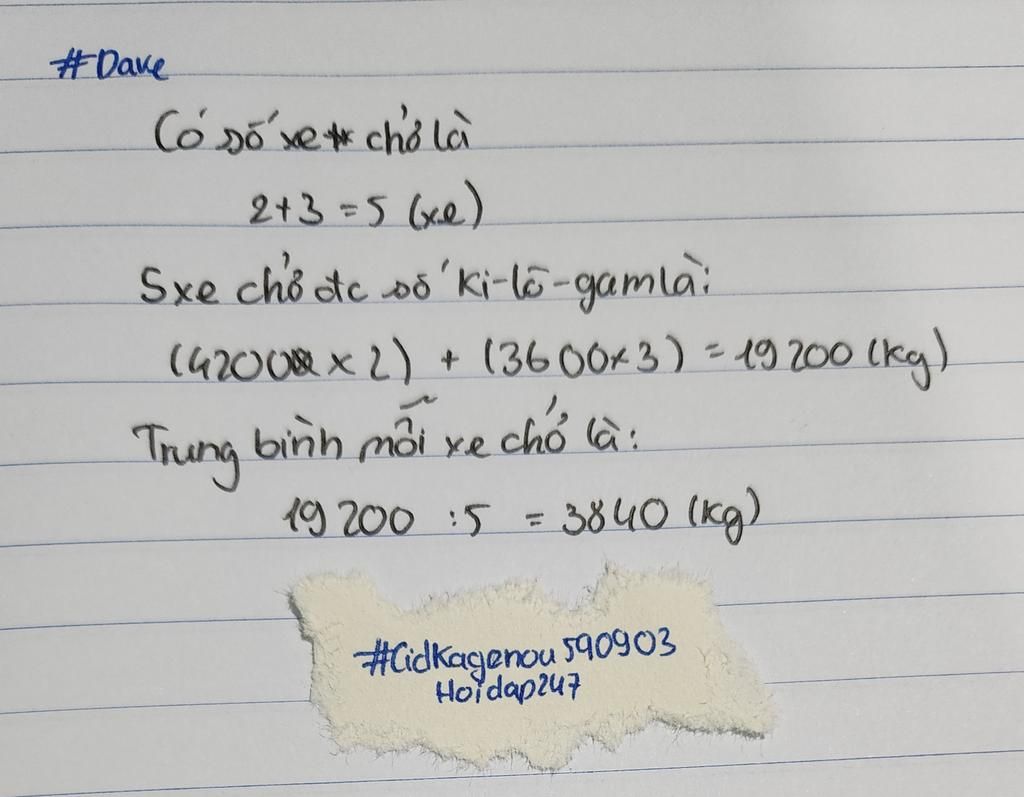 #Dave
Có số xe chở là
2+3 = 5 (xe)
5xe chở đc số ki-lô-gam là:
(4200 x 2) + (3600 x 3) = 19 200 (kg)
Trung bình mỗi xe chở là:
19 200 : 5 = 3840 (kg)
#CidKagenou590903
Hoidap247